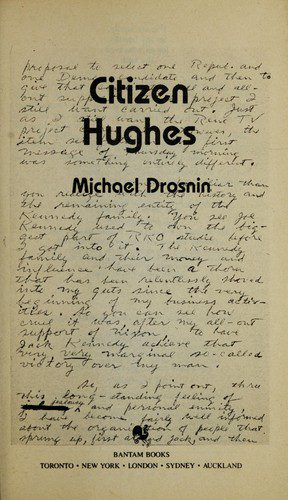 proposal to select one Repub. and
one Democ candidate and then to
give that and all-
out support project I
still want carried out. Just
as I still want the Reno TV
project the
item first
message of Thursday morning
was something entirely different.
Citizen
Hughes
Michael Drosnin
than
history and
the remaining entity of the
Kennedy family. You see Joe
Kennedy used to own the big-
gest part of RKO studio before
I got into it. The Kennedy
family and their money and
influence have been a thorn
that has been relentlessly shoved
into my guts since the very
beginning of my business activ-
ities. So you can see how
cruel it was, after my all-out
support of Nixon, to have
Jack Kennedy achieve that
very, very marginal so-called
victory over my man.
So, as I point out, thru
this long-standing feeling of
jealousy and personal enmity,
I have become fairly well informed
about the organization of people that
spring up, first around Jack, and then
BANTAM BOOKS
TORONTO • NEW YORK • LONDON • SYDNEY • AUCKLAND